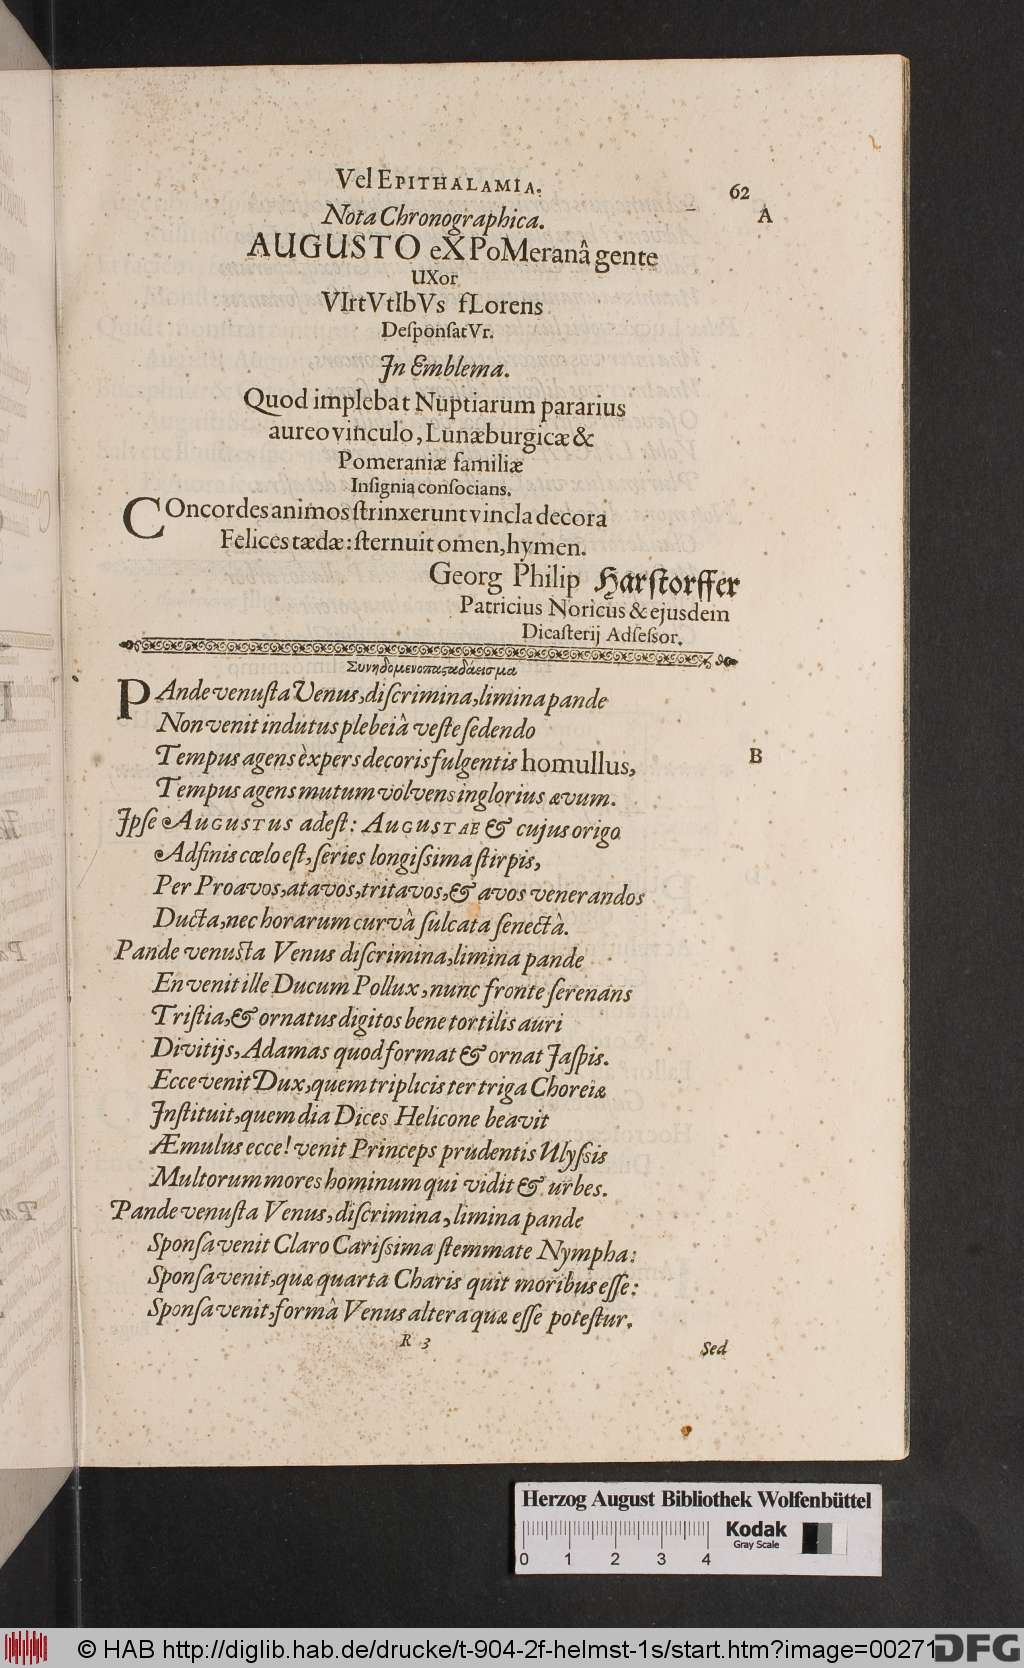 Vel EPITHALAMIA.
62
Nota Chronographica.
A
AUGUSTO eXPoMeranâ gente
UXor
VIrtVtIbVs fLorens
DeſponſatVr.
In Emblema.
Quod implebat Nuptiarum pararius
aureo vinculo, Lunæburgicæ &
Pomeraniæ familiæ
Inſignia conſocians.
COncordes animos ſtrinxerunt vincla decora
Felices tædæ: ſternuit omen, hymen.
Georg Philip Harſtorffer
Patricius Noricus & ejusdem
Dicaſterij Adſeſsor.
PAnde venuſta Venus, diſcrimina, limina pande
Non venit indutus plebeiâ veſte ſedendo
Tempus agens èxpers decoris fulgentis homullus,
B
Tempus agens mutum volvens inglorius ævum.
Ipſe AUGUSTUS adeſt: AUGUSTAE & cujus origo
Adfinis cœlo eſt, ſeries longiſsima ſtirpis,
Per Proavos, atavos, tritavos, & avos venerandos
Ducta, nec horarum curvâ ſulcata ſenectâ.
Pande venuſta Venus diſcrimina, limina pande
En venit ille Ducum Pollux, nunc fronte ſerenans
Triſtia, & ornatus digitos bene tortilis auri
Divitijs, Adamas quod format & ornat Jaſpis.
Ecce venit Dux, quem triplicis ter triga Choreiæ
Inſtituit, quem dia Dices Helicone beavit
Æmulus ecce! venit Princeps prudentis Ulyſsis
Multorum mores hominum qui vidit & urbes.
Pande venuſta Venus, diſcrimina, limina pande
Sponſa venit Claro Cariſsima ſtemmate Nympha:
Sponſa venit, quæ quarta Charis quit moribus eſſe:
Sponſa venit, formâ Venus altera quæ eſſe poteſtur.
R 3
Sed
Herzog August Bibliothek Wolfenbüttel
0 1 2 3 4
Kodak
Gray Scale
© HAB http://diglib.hab.de/drucke/t-904-2f-helmst-1s/start.htm?image=00271
DFG